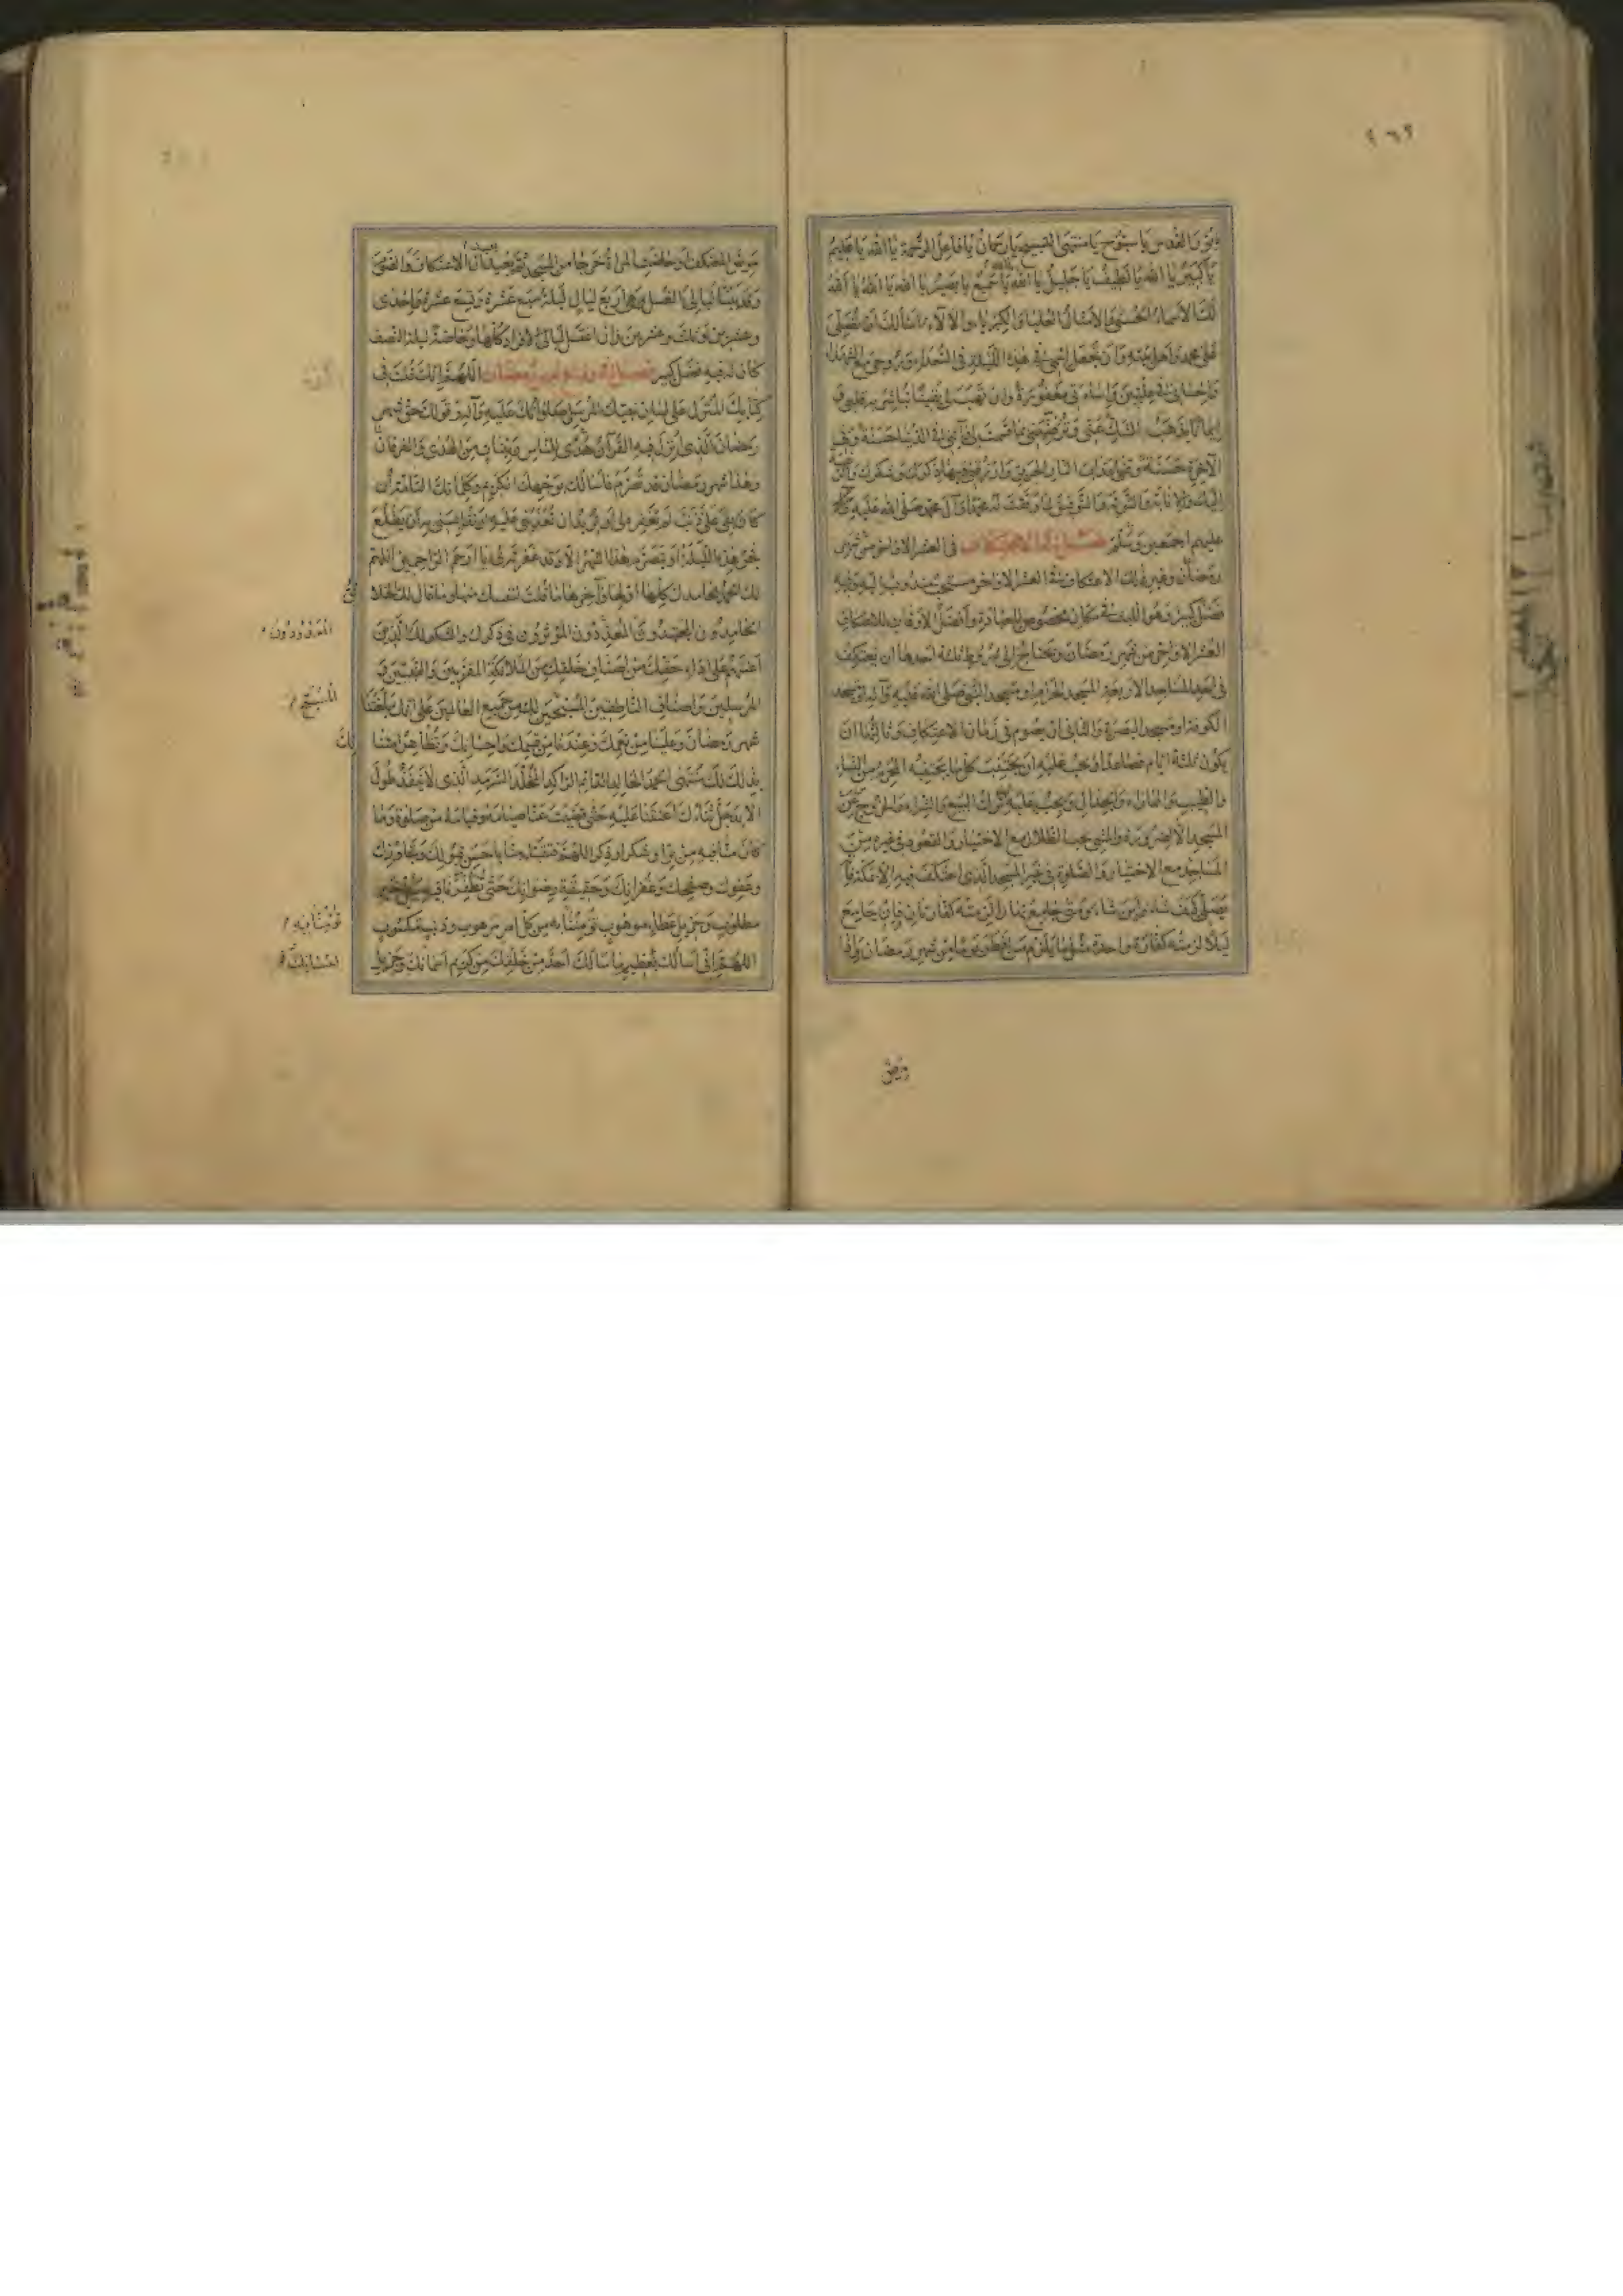 يا قدوس يا سبوح يا منتهى التسبيح يا رحمان يا فاعل الرحمة يا الله يا عليم
يا كبير يا الله يا لطيف يا جليل يا الله يا سميع يا بصير يا الله يا الله يا الله
لك الاسماء الحسنى والامثال العليا والكبرياء والآلاء اسألك ان تصلي
على محمد واهل بيته وان تجعل اسمي في هذه الليلة في السعداء وروحي مع الشهداء
واحساني في عليين واساءتي مغفورة وان تهب لي يقينا تباشر به قلبي و
ايمانا يذهب الشك عني وترضيني بما قسمت لي وآتني في الدنيا حسنة وفي
الآخرة حسنة وقني عذاب النار الحريق وارزقني فيها ذكرك وشكرك والرغبة
اليك والانابة والتوبة والتوفيق لما وفقت له محمدا وآل محمد صلى الله عليه و
عليهم اجمعين وسلم فصل في الاعتكاف في العشر الاواخر من شهر
رمضان وغير ذلك الاعتكاف في العشر الاواخر مستحب مندوب اليه وفيه
فضل كبير وهو اللبث في مكان مخصوص للعبادة وافضل الاوقات للاعتكاف
العشر الاواخر من شهر رمضان ويحتاج الى شروط ثلثة احدها ان يعتكف
في احد المساجد الاربعة المسجد الحرام او مسجد النبي صلى الله عليه وآله او مسجد
الكوفة او مسجد البصرة والثاني ان يصوم في زمان الاعتكاف وثالثها ان
يكون ثلثة ايام فصاعدا ويجب عليه ان يجتنب كل ما يجتنبه المحرم من النساء
والطيب والمماراة والجدال ويجب عليه ترك البيع والشراء والخروج عن
المسجد الا لضرورة والمشي تحت الظلال مع الاختيار والقعود في غيره من
المساجد مع الاختيار والصلوة في غير المسجد الذي اعتكف فيه الا بمكة فانه
يصلي كيف شاء واين شاء ومتى جامع نهارا لزمته كفارتان فان جامع
ليلا لزمته كفارة واحدة مثل ما يلزم من افطر يوما من شهر رمضان واذا
مرض
مرض المعتكف او حاضت المراة خرجا من المسجد ثم يعيدان الاعتكاف والصوم
وقد بينا ليالي الغسل وهي اربع ليال ليلة سبع عشرة وتسع عشرة واحدى
وعشرين وثلث وعشرين وان اغتسل ليالي الافراد كلها وخاصة ليلة النصف
كان له فيه فضل كبير فصل في وداع شهر رمضان اللهم انك قلت في
كتابك المنزل على لسان نبيك المرسل صلواتك عليه وآله وقولك حق شهر
رمضان الذي انزل فيه القرآن هدى للناس وبينات من الهدى والفرقان
وهذا شهر رمضان قد تصرم فاسألك بوجهك الكريم وكلماتك التامة ان
كان بقي علي ذنب لم تغفره لي او تريد ان تعذبني عليه او تقايسني به ان يطلع
فجر هذه الليلة او يتصرم هذا الشهر الا وقد غفرته لي يا ارحم الراحمين اللهم
لك الحمد بمحامدك كلها اولها وآخرها ما قلت لنفسك منها وما قال لك الخلائق
الحامدون المجتهدون المعددون المؤثرون في ذكرك والشكر لك الذين
المعدودون
اعنتهم على اداء حقك من اصناف خلقك من الملائكة المقربين والنبيين و
المرسلين واصناف الناطقين المسبحين لك من جميع العالمين على انك بلغتنا
شهر رمضان وعلينا من نعمك وعندنا من قسمك واحسانك وتظاهر امتنا
بذلك لك منتهى الحمد الخالد الدائم الراكد المخلد السرمد الذي لا ينفد طول
الابد جل ثناؤك اعنتنا عليه حتى قضيت عنا صيامه وقيامه من صلوة وما
كان منا فيه من بر او شكر او ذكر اللهم فتقبله منا باحسن قبولك وتجاوزك
وعفوك وصفحك وغفرانك وحقيقة رضوانك حتى تظفرنا فيه بكل خير
مطلوب وجزيل عطاء موهوب تؤمننا به من كل امر مرهوب وذنب مكسوب
اللهم اني اسألك بعظيم ما سألك احد من خلقك من كريم اسمائك وجزيل